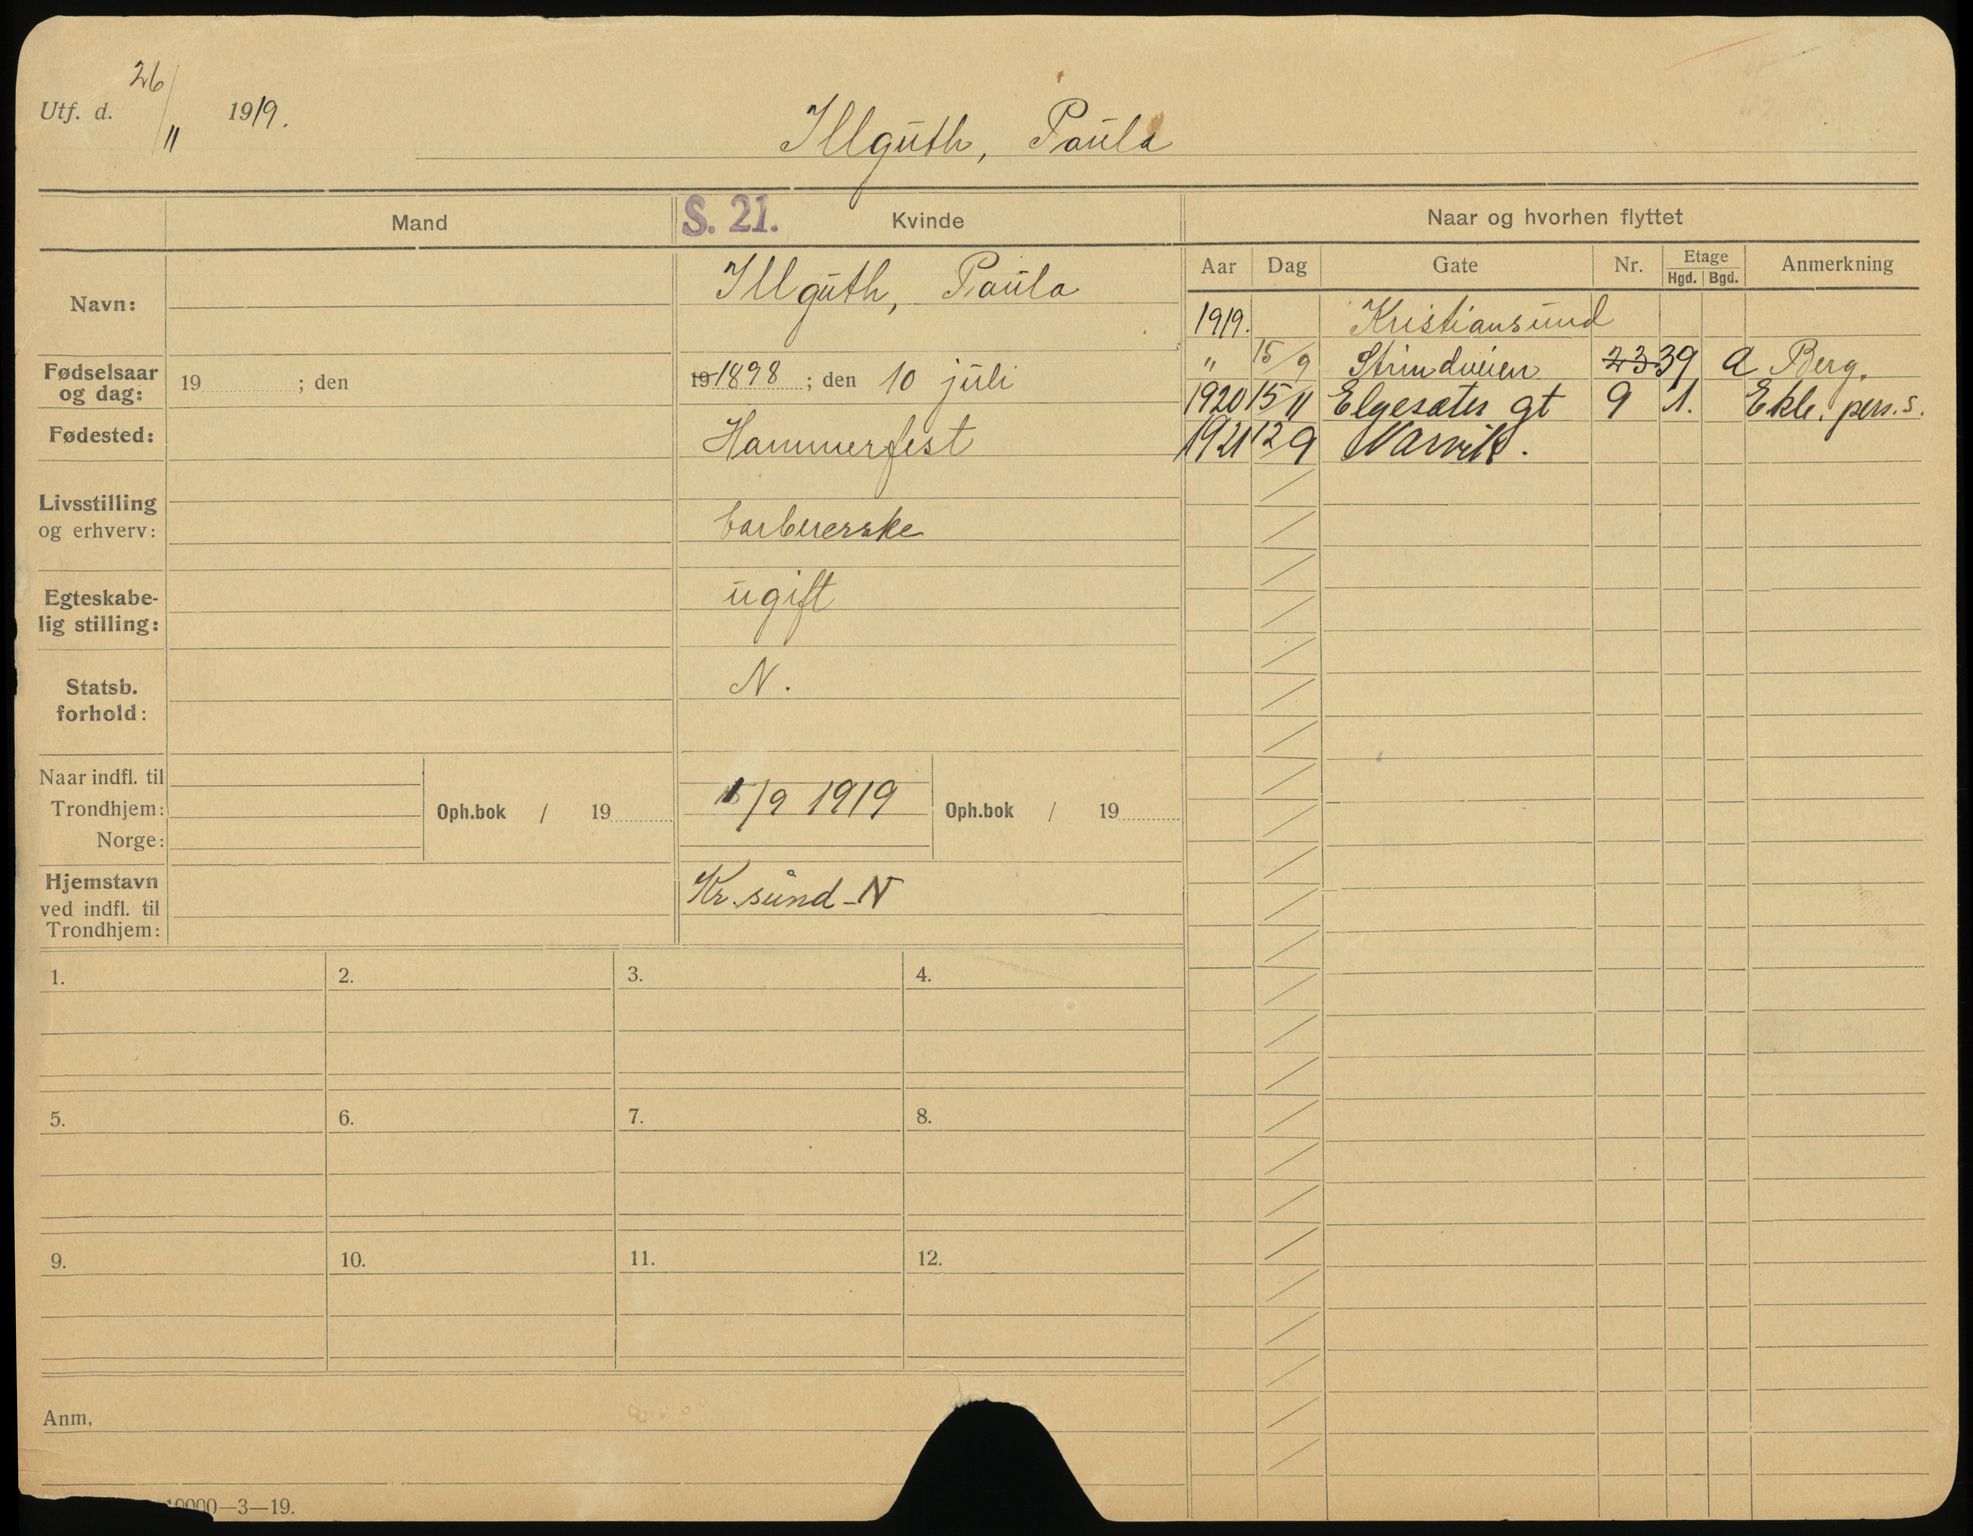 Utf. d. 26/11 1919.
Illguth, Paula
Mand
S. 21.
Kvinde
Naar og hvorhen flyttet
Aar Dag Gate Nr. Etage Hgd. Bgd. Anmerkning
Navn: Illguth, Paula
Fødselsaar og dag: 19 ; den
19 1898 ; den 10 juli
Fødested: Hammerfest
Livsstilling og erhverv: barbererske
Egteskabe-
lig stilling: ugift
Statsb. forhold: N.
Naar indfl. til
Trondhjem: Oph.bok / 19
/9 1919 Oph.bok / 19
Norge:
Hjemstavn
ved indfl. til
Trondhjem: Kr.sund-N
1919. Kristiansund
" 15/9 Strindveien 23 39 a Berg.
1920 15/11 Elgesæter gt 9 1. Ekle. pers.s.
1921 12/9 Narvik.
1. 2. 3. 4.
5. 6. 7. 8.
9. 10. 11. 12.
Anm.
10000—3—19.